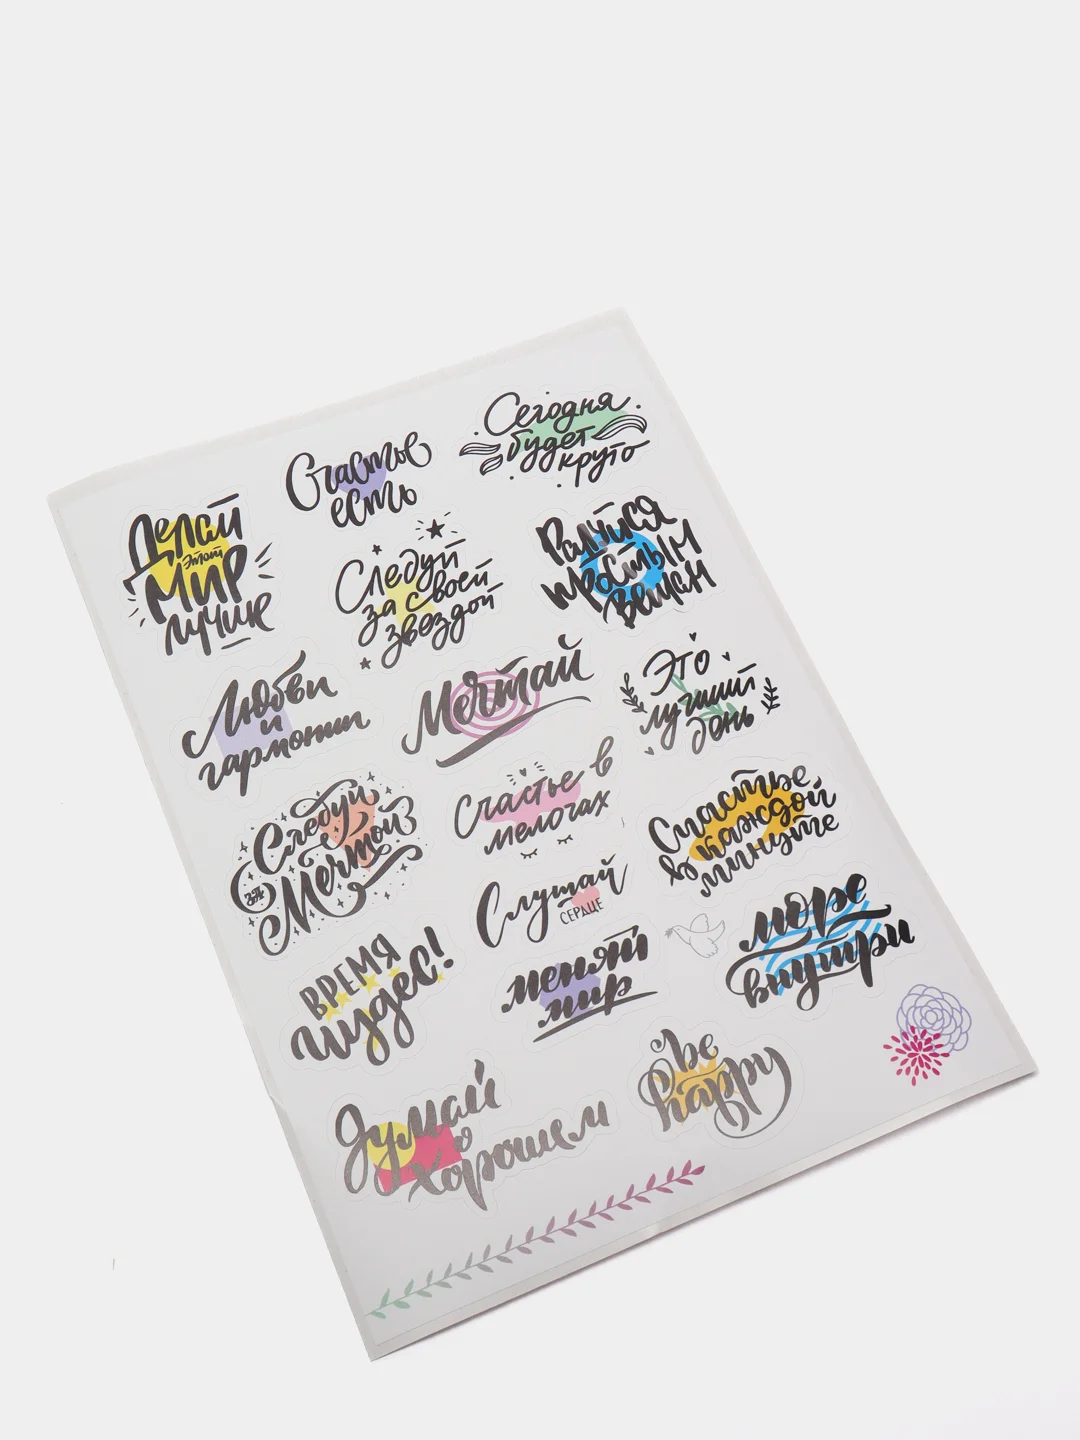 Сегодня
будет
круто
Счастье
есть
Делай
этот
мир
лучше
Следуй
за своей
звездой
Радуйся
простым
вещам
Любви
и
гармонии
Мечтай
Это
лучший
день
Следуй
за
Мечтой
Счастье в
мелочах
Счастье
в каждой
минуте
Слушай
СЕРДЦЕ
ВРЕМЯ
чудес!
меняй
мир
море
внутри
Думай
о
хорошем
be
happy